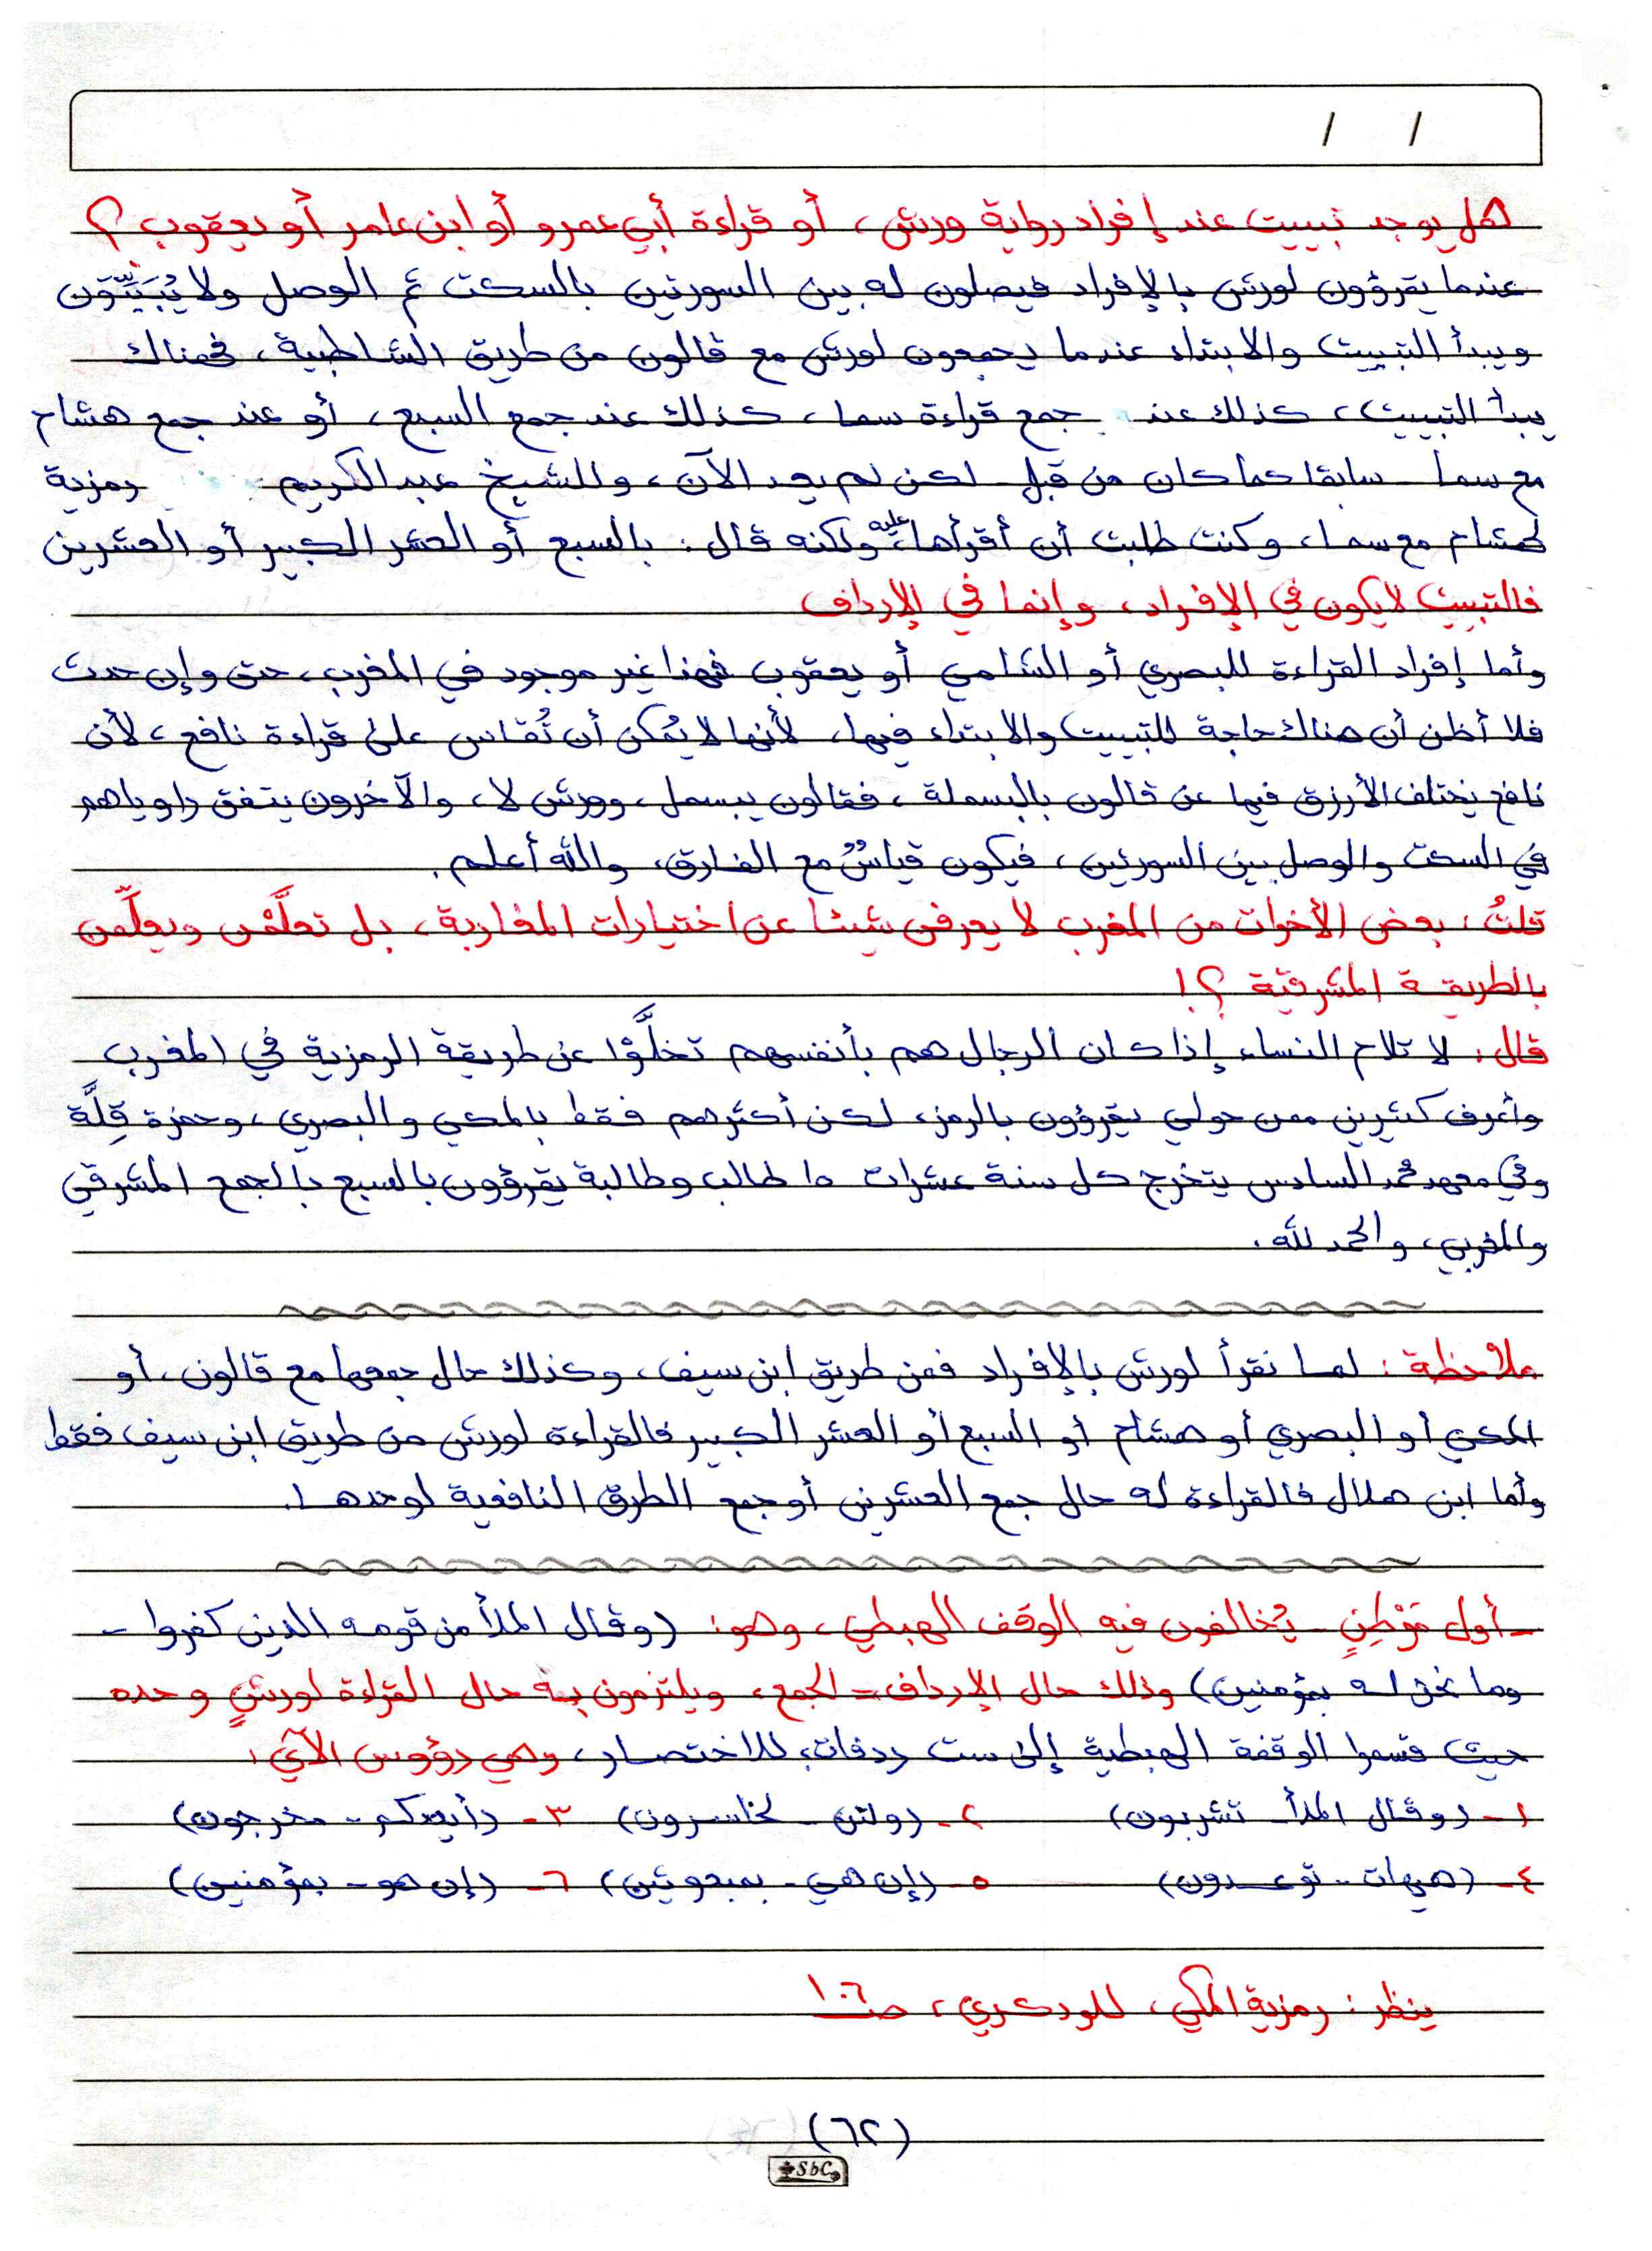 / /
هل يوجد تبييت عند إفراد رواية ورش، أو قراءة أبي عمرو أو ابن عامر أو يعقوب؟
عندما يقرؤون لورش بالإفراد فيصلون له بين السورتين بالسكت ثم الوصل ولا يُبَيِّتون
ويبدأ التبييت والابتداء عندما يجمعون لورش مع قالون من طريق الشاطبية، فهناك
يبدأ التبييت، كذلك عند جمع قراءة سما، كذلك عند جمع السبع، أو عند جمع هشام
مع سما سابقا كما كان من قبل لكن لم يعد الآن، وللشيخ عبد الكريم رمزية
لهشام مع سما، وكنت طلبت أن أقرأها عليه ولكنه قال: بالسبع أو العشر الكبير أو العشرين
فالتبييت لا يكون في الإفراد، وإنما في الإرداف
وأما إفراد القراءة للبصري أو الشامي أو يعقوب فهذا غير موجود في المغرب، حتى وإن حدث
فلا أظن أن هناك حاجة للتبييت والابتداء فيها، لأنها لا يُمكن أن تُقاس على قراءة نافع، لأن
نافع يختلف الأزرق فيها عن قالون بالبسملة، فقالون يبسمل، وورش لا، والآخرون يتفق راوياهم
في السكت والوصل بين السورتين، فيكون قياسٌ مع الفارق، والله أعلم.
قلتُ: بعض الأخوات من المغرب لا يعرفن شيئا عن اختيارات المغاربة، بل تعلَّمْن ويعلِّمن
بالطريقة المشرقية؟!
قال: لا تلام النساء إذا كان الرجال هم بأنفسهم تخلَّوْا عن طريقة الرمزية في المغرب
وأعرف كثيرين ممن حولي يقرؤون بالرمز، لكن أكثرهم فقط بالمكي والبصري، وحمزة قِلَّة
وفي معهد محمد السادس يتخرج كل سنة عشرات ال طالب وطالبة يقرؤون بالسبع بالجمع المشرقي
والمغربي، والحمد لله.
ملاحظة: لما نقرأ لورش بالإفراد فمن طريق ابن سيف، وكذلك حال جمعها مع قالون، أو
المكي أو البصري أو هشام أو السبع أو العشر الكبير فالقراءة لورش من طريق ابن سيف فقط
وأما ابن هلال فالقراءة له حال جمع العشرين أو جمع الطرق النافعية لوحدها.
- أول مَوْطِنٍ يُخالفون فيه الوقف الهبطي، وهو: (وقال الملأ من قومه الذين كفروا -
وما نحن له بمؤمنين) وذلك حال الإرداف = الجمع، ويلتزمون به حال القراءة لورشٍ وحده
حيث قسموا الوقفة الهبطية إلى ست ردفات، للاختصار، وهي رؤوس الآي:
١- (وقال الملأ - تشربون) ٢- (ولئن - لخاسرون) ٣- (أيعدكم - مخرجون)
٤- (هيهات - توعدون) ٥- (إن هي - بمبعوثين) ٦- (إن هو - بمؤمنين)
ينظر: رمزية المكي، للودكري، صـ ١٠٦
(٦٢)
SbC